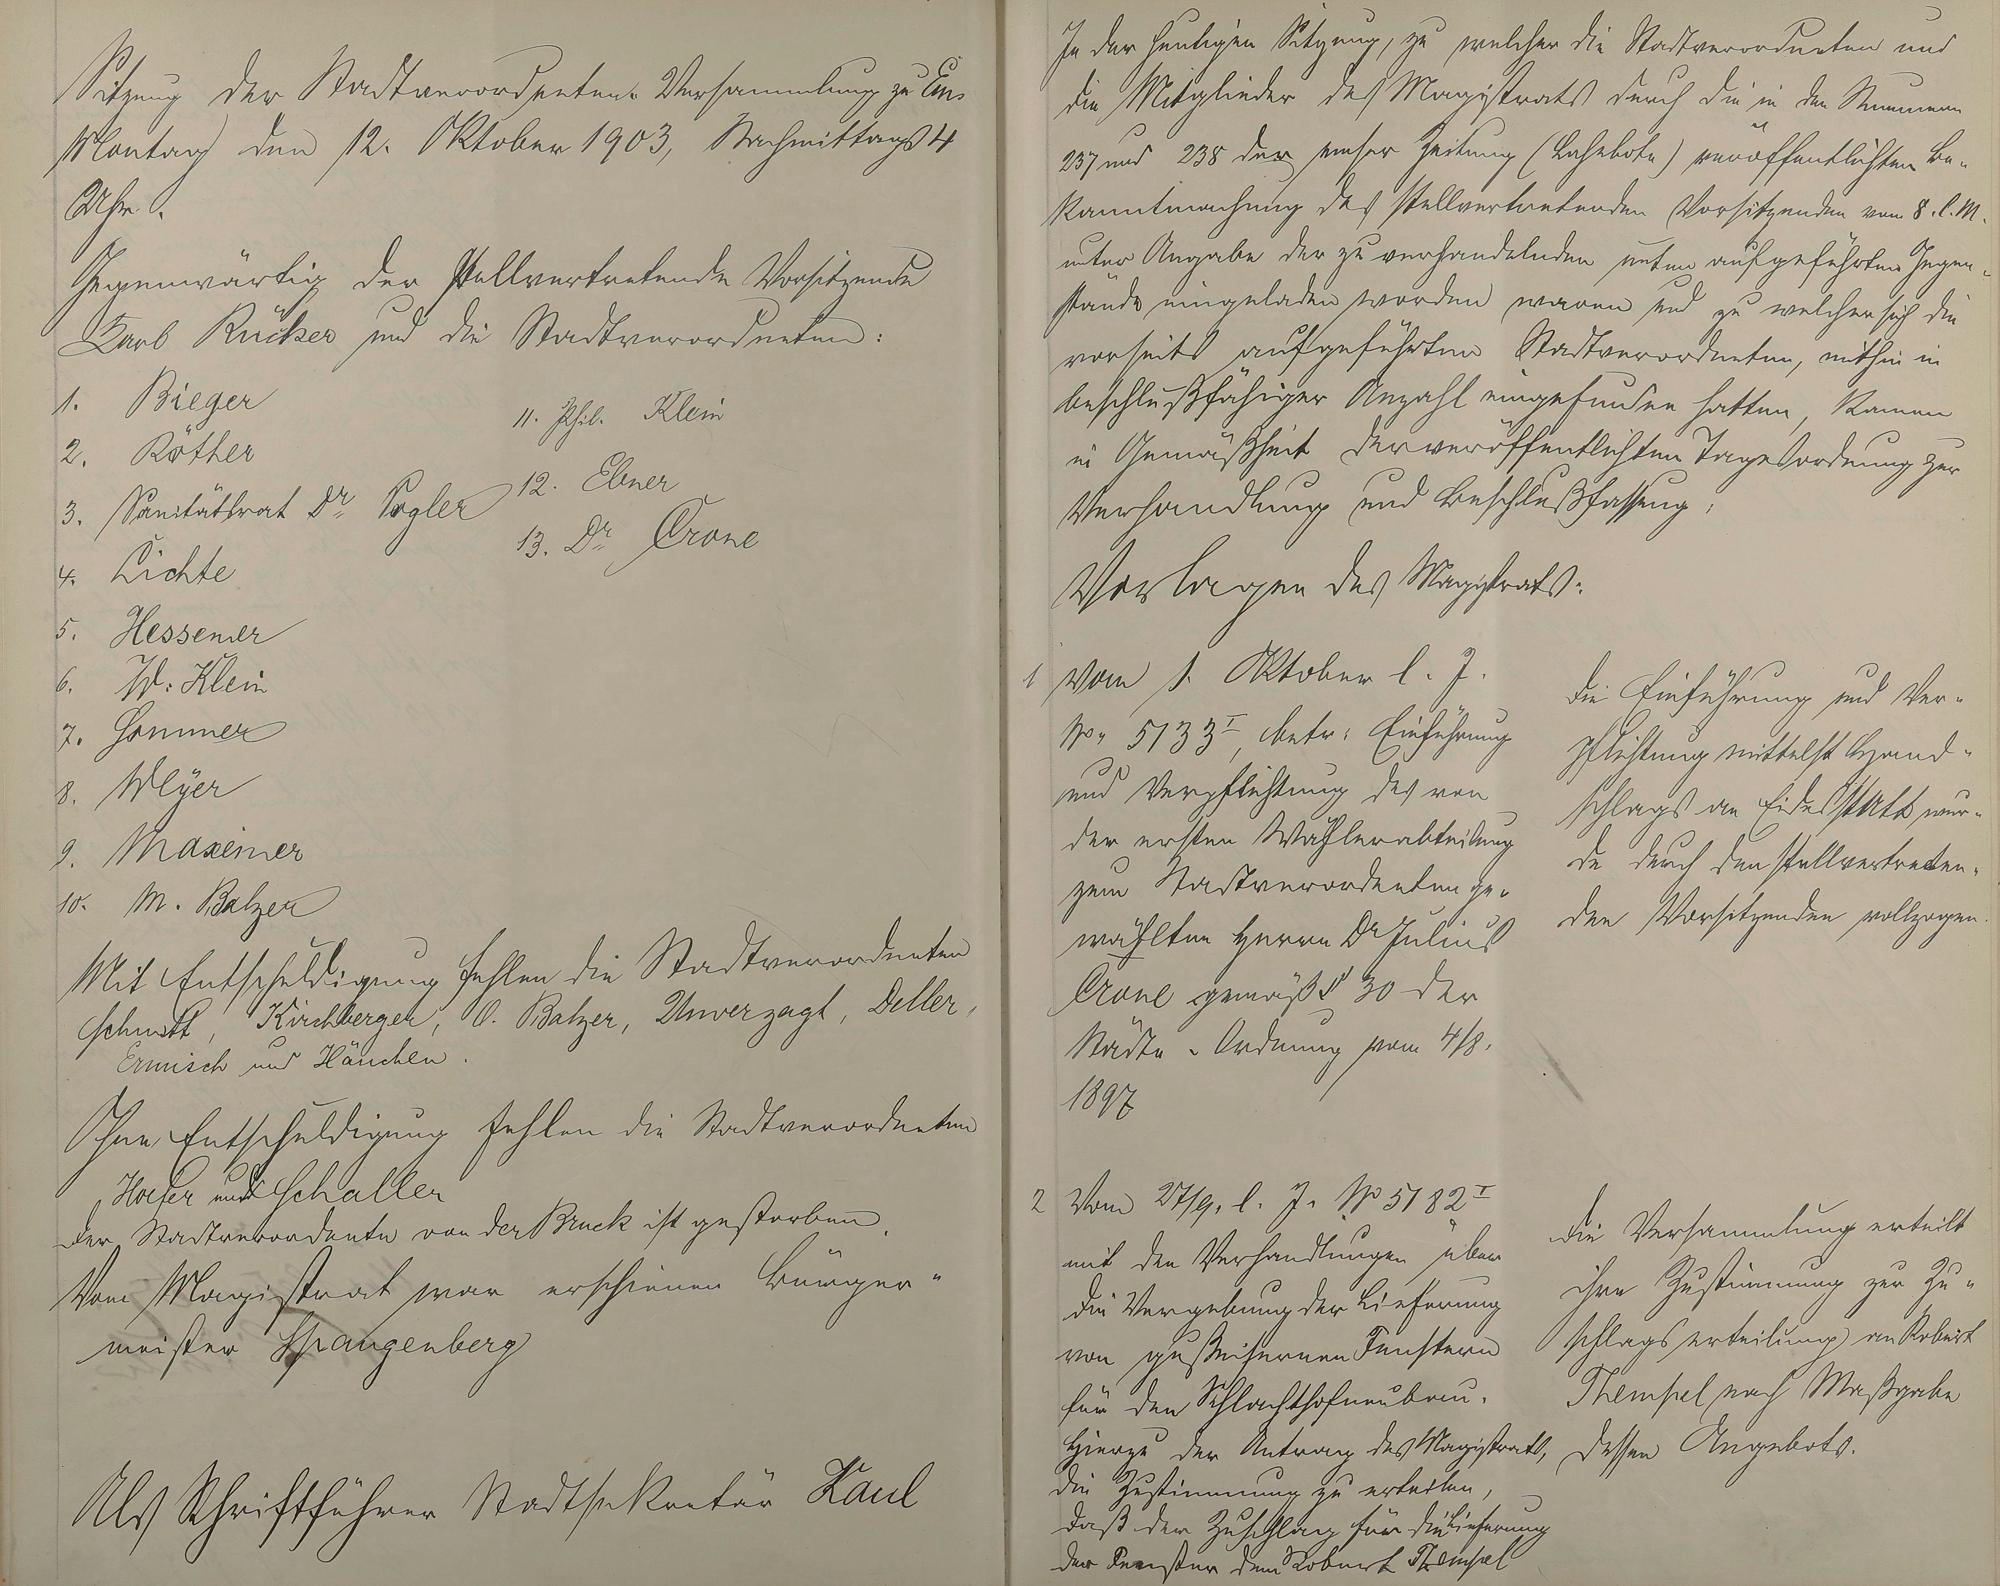 Sitzung der Stadtverordneten-Versammlung zu Ems
Montag den 12. Oktober 1903, Nachmittags 4
Uhr.
Gegenwärtig der stellvertretende Vorsitzende
Karb Rücker und die Stadtverordneten:
1. Bieger
2. Röther
3. Sanitätsrat Dr. Vogler
4. Lichte
5. Hessemer
6. W. Klein
7. Sommer
8. Meyer
9. Maxeiner
10. M. Balzer
11. Phil. Klein
12. Ebner
13. Dr. Crone
Mit Entschuldigung fehlen die Stadtverordneten
Schmitt, Kirchberger, C. Balzer, Unverzagt, Deller,
Ermisch und Hänchen.
Ohne Entschuldigung fehlen die Stadtverordneten
Hoefer und Schaller
Der Stadtverordnete von der Bruck ist gestorben.
Vom Magistrat war erschienen Bürger-
meister Spangenberg
Als Schriftführer Stadtsekretär Kaul
In der heutigen Sitzung, zu welcher die Stadtverordneten und
die Mitglieder des Magistrats durch die in den Nummern
237 und 238 der Emser Zeitung (Lahnbote) veröffentlichten Be-
kanntmachung des stellvertretenden Vorsitzenden vom 8. l. M.
unter Angabe der zu verhandelnden unten aufgeführten Gegen-
stände eingeladen worden waren und zu welcher sich die
vorseits aufgeführten Stadtverordneten, mithin in
beschlußfähiger Anzahl eingefunden hatten, kamen
in Gemäßheit der veröffentlichten Tagesordnung zur
Verhandlung und Beschlußfassung:
Vorlagen des Magistrats:
1 Vom 1. Oktober l. J.
No. 5133 I, betr. Einführung
und Verpflichtung des von
der ersten Wählerabteilung
zum Stadtverordneten ge-
wählten Herrn Dr Julius
Crone gemäß § 30 der
Städte-Ordnung vom 4/8.
1897
Die Einführung und Ver-
pflichtung mittelst Hand-
schlags an Eidesstatt wur-
de durch den stellvertreten-
den Vorsitzenden vollzogen.
2 Vom 27/9. l. J. No 5182 I
mit den Verhandlungen über
die Vergebung der Lieferung
von gußeisernen Fenstern
für den Schlachthofneubau.
Hierzu der Antrag des Magistrats,
die Zustimmung zu erteilen,
daß der Zuschlag für die Lieferung
der Fenster dem Robert Thempel
Die Versammlung erteilt
ihre Zustimmung zur Zu-
schlagserteilung an Robert
Thempel nach Maßgabe
dessen Angebots.